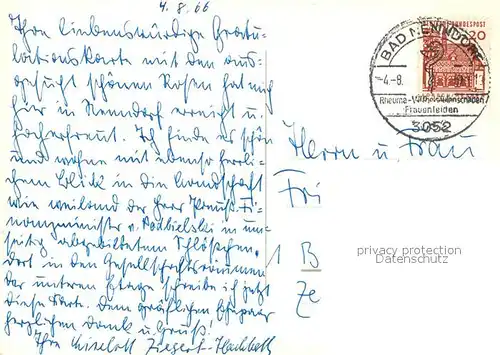 4.8.66
Ihre liebenswürdige Gratu-
lationskarte mit den aus-
gesucht schönen Rosen hat mich
hier in Nenndorf erreicht u.
hocherfreut. Ich finde es schön
und wohne mit ebenso herrli-
chem Blick in die Landschaft
wie weiland der Herr Preuß. Fi-
nanzminister v. Podbielski in um-
seitig abgebildetem Schlößchen.
dort in den Gesellschaftsräumen
der unteren Etage schreibe ich jetzt
diese Karte. Dem gräflichen Ehepaar
herzlichen Dank u. Gruß!
Ihre Liselott Ziegert-Hackbarth
BUNDESPOST
20
BAD NENNDORF
-4.-8.
Rheuma-
Frauenleiden
3052
Herrn u. Frau
Fri
1 B
Ze
privacy protection
Datenschutz